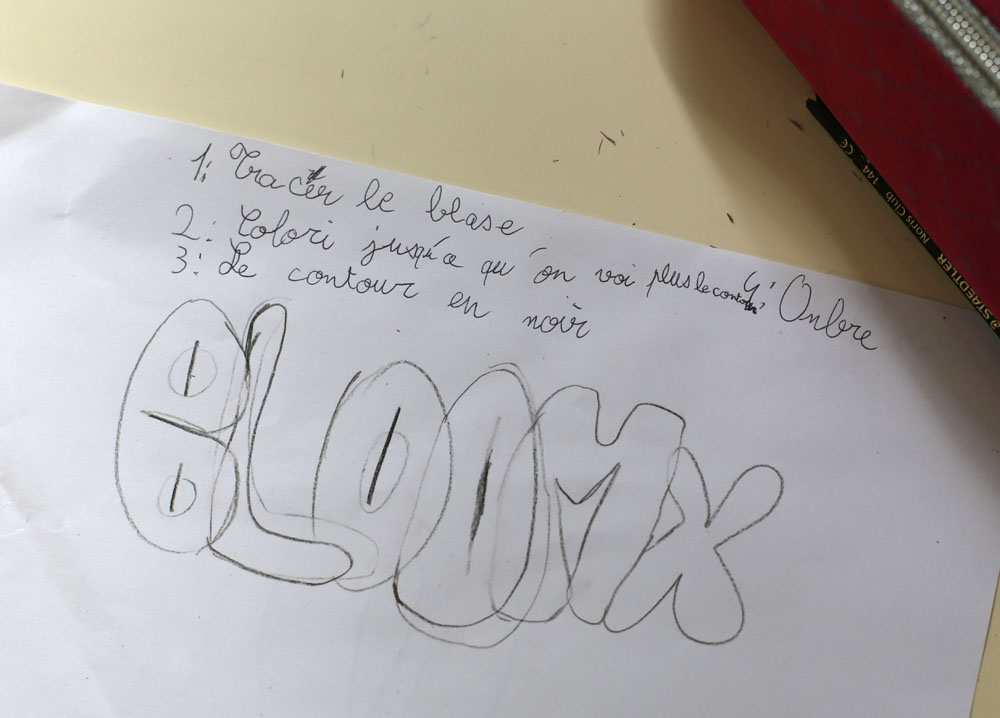 1: Tracer le blase
2: Colori jusqu'a qu'on voi plus le contour
3: Le contour en noir
4: Onbre
BLOOMX
STAEDTLER Noris Club 144 CE